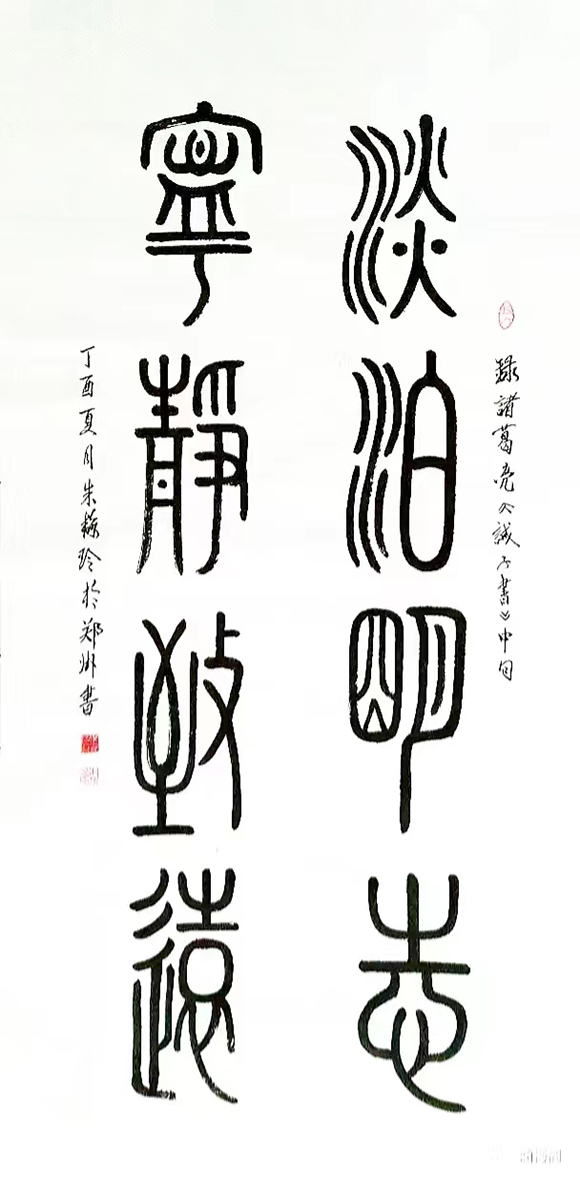 錄諸葛亮《誡子書》中句
淡泊明志
寧靜致遠
丁酉夏月朱
玲於郑州書